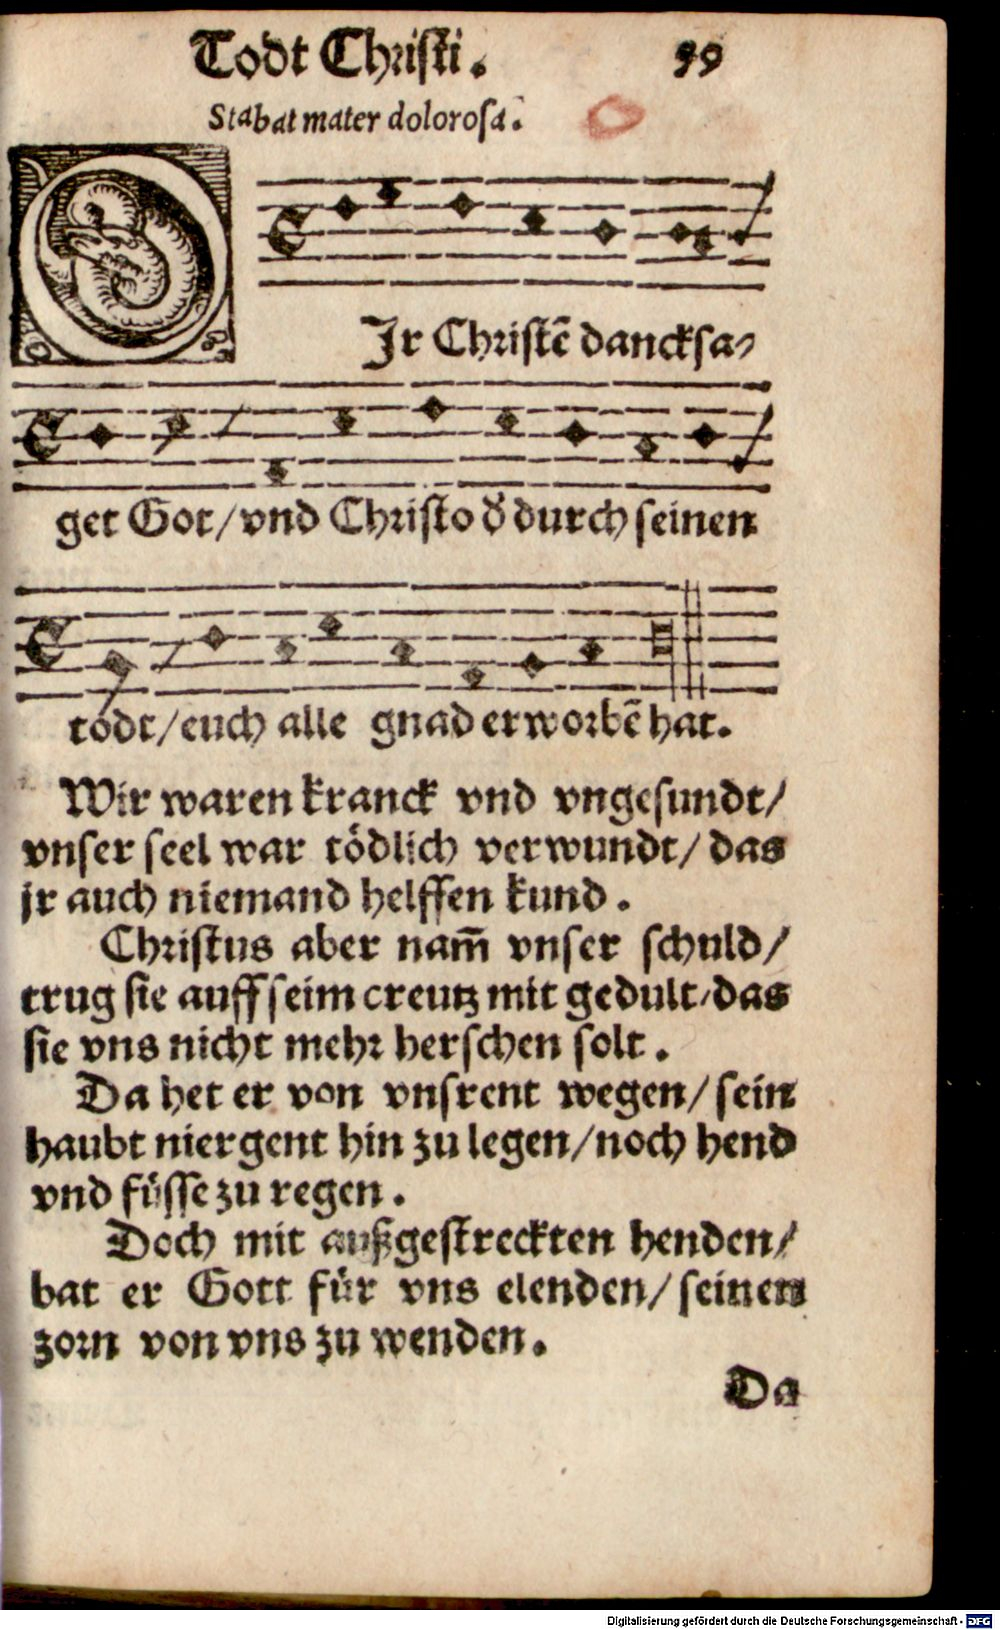 Todt Christi. 59
Stabat mater dolorosa.
O
Jr Christē dancksa⸗
get Got/vnd Christo d̕ durch seinen
todt/euch alle gnad erworbē hat.
Wir waren kranck vnd vngesundt/
vnser seel war tödlich verwundt/ das
jr auch niemand helffen kund.
Christus aber nam̄ vnser schuld/
trug sie auff seim creutz mit gedult/das
sie vns nicht mehr herschen solt.
Da het er von vnsrent wegen/ sein
haubt niergent hin zu legen/noch hend
vnd füsse zu regen.
Doch mit außgestreckten henden/
bat er Gott für vns elenden/ seinen
zorn von vns zu wenden.
Da
Digitalisierung gefördert durch die Deutsche Forschungsgemeinschaft - DFG